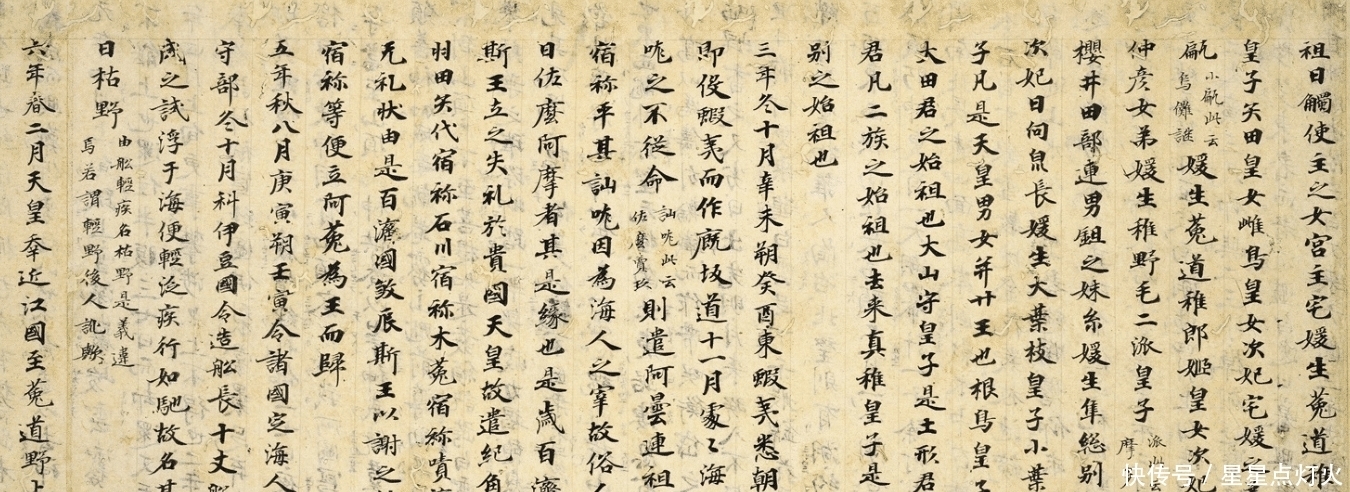 祖日觸使主之女宮主宅媛生菟道
皇子矢田皇女雌鳥皇女次妃宅媛之
甂小甂此云烏儺謎媛生菟道稚郎姬皇女次妃
仲彥女弟媛生稚野毛二派皇子派此摩
櫻井田部連男鉏之妹糸媛生隼総別
次妃日向泉長媛生大葉枝皇子小葉
子凡是天皇男女并廿王也根鳥皇子
大田君之始祖也大山守皇子是土形君
君凡二族之始祖也去来真稚皇子是
别之始祖也
三年冬十月辛未朔癸酉東蝦夷悉朝
即役蝦夷而作厩坂道十一月處〻海
咙之不從命訕咙此云佐麼賣玖則遣阿曇連祖
宿祢平其訕咙因為海人之宰故俗人
曰佐麼阿摩者其是緣也是歲百濟
斯王立之失礼於貴國天皇故遣紀角
羽田矢代宿祢石川宿祢木菟宿祢嘖
无礼狀由是百濟國敘辰斯王以謝之
宿祢等便立阿菟為王而歸
五年秋八月庚寅朔壬寅令諸國定海人
守部冬十月科伊豆國令造舩長十丈舩
成之試浮于海便輕泛疾行如馳故名其
曰枯野由舩輕疾名枯野是義違焉若謂輕野後人訛歟
六年春二月天皇幸近江國至菟道野上
快传号/星星点灯火